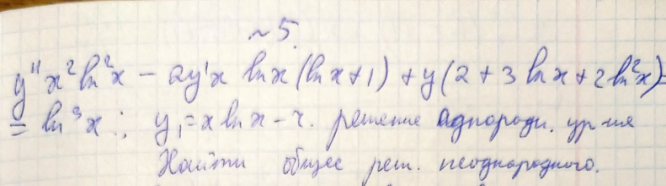 ~ 5.
y" x² ln²x - 2y'x lnx (lnx+1) + y(2 + 3 lnx + 2 ln²x) =
= ln³x ; y₁ = x lnx - x. решение однородн. ур-ия
Найти общее реш. неоднородного.